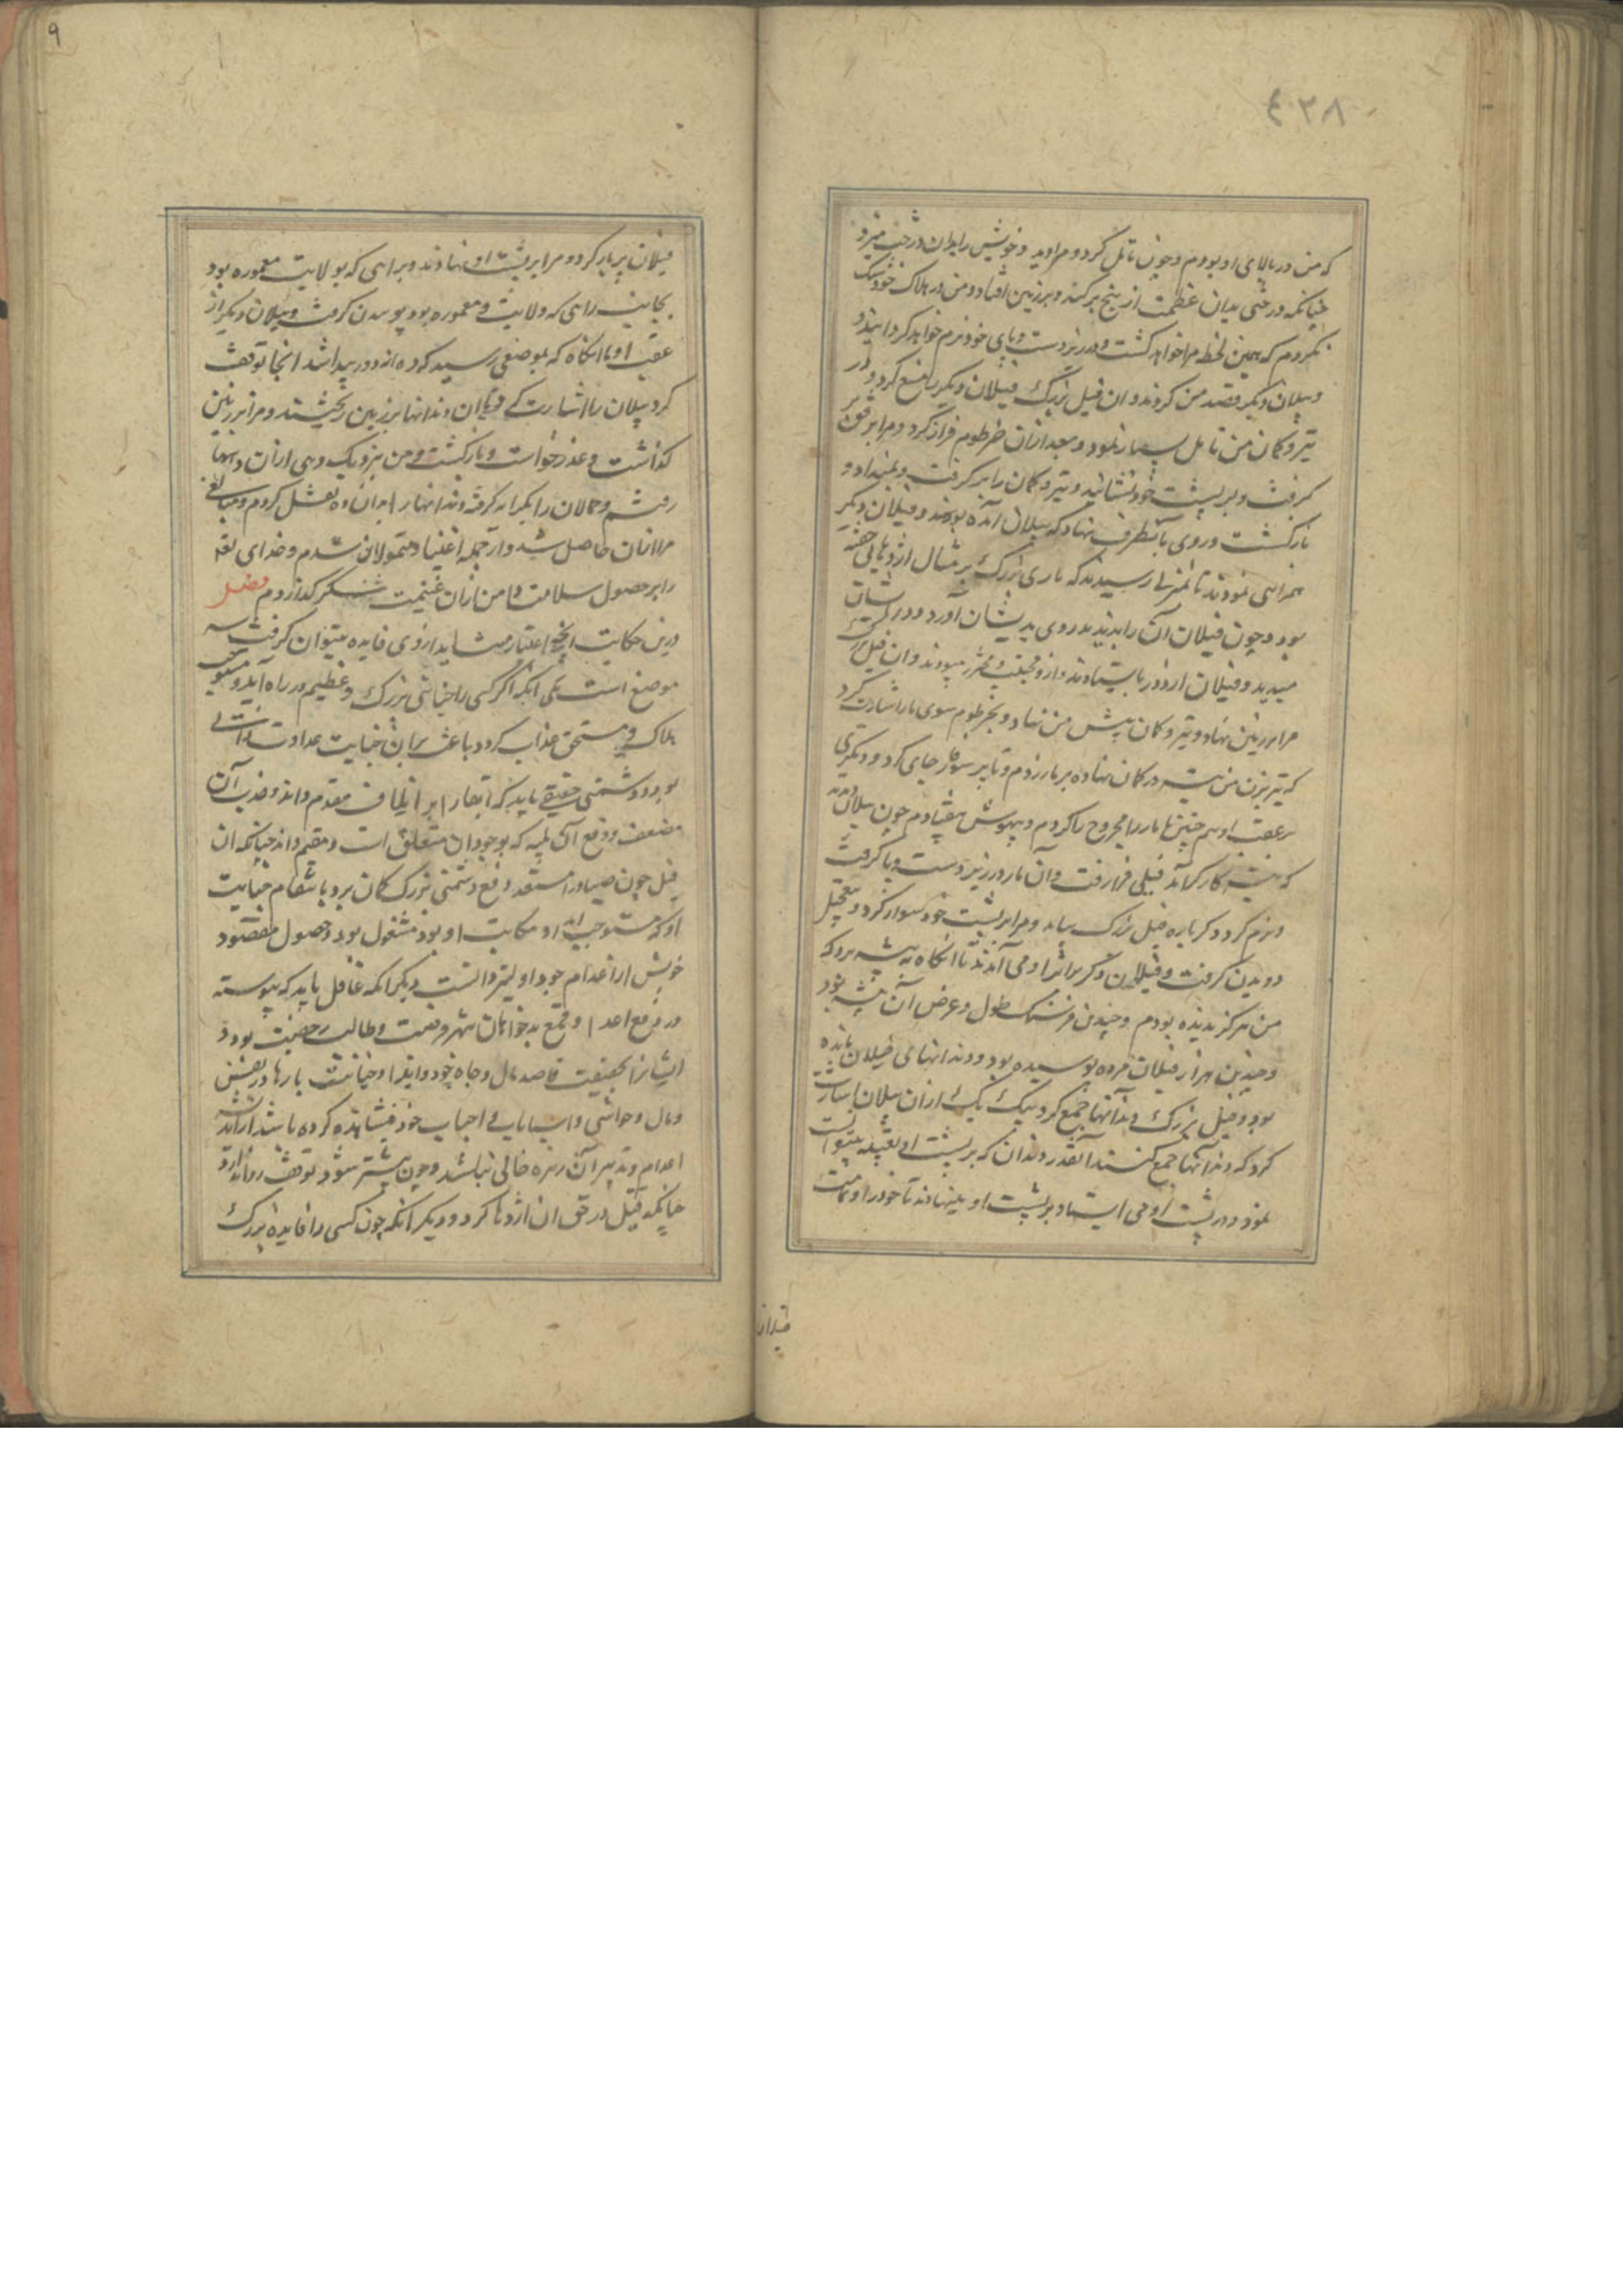 ٤٣٨
که من در بالای او بودم و چون تامل کرد و مرا دید و خویش را بدان درخت میزد
چنانکه درختی بدان عظمت از بیخ برکند و بر زمین افتاد و من در هلاک خود شک
نکردم که همین لحظه مرا خواهد کشت و در زیر دست و پای خود نرم خواهد کردانید و
و پیلان دیگر قصد من کردند و ان فیل بزرگ فیلان دیگر را منع کرد و در
تیر و کمان من تامل بسیار نمود و بعد ازان خرطوم فراز کرد و مرا برفق بر
گرفت و بر پشت خود نشانید و تیر و کمان را بر گرفت و بمن داد و
بازگشت و روی بآنطرف نهاد که پیلان آمده بودند و فیلان دیگر
همراهی نمودند تا بمنزلی رسیدند که ماری بزرگ بر مثال اژدهایی خفته
بود و چون فیلان آن را بدیدند روی پریشان آورد و در ایشان
میدید و فیلان از دور بایستادند و ازو مجتنب و محترز میبودند و ان فیل بزرگ
مرا بر زمین نهاد و تیر و کمان پیش من نهاد و بخرطوم سوی مار اشارت کرد
که تیر بزن من تیر در کمان نهاده بر مار زدم و تا پر سوفار جای کرد و دیگر تیری
بر عقب او هم چنین تا مار را مجروح کردم و بیهوش بیفتاد چون پیلان دیدند
که تیر کارگر آمد فیلی فرا رفت و آن مار در زیر دست و پا گرفت
و نرم کرد و دگر باره فیل بزرگ بیامد و مرا بر پشت خود سوار کرد و بتعجیل
دویدن گرفت و فیلان دگر بر اثر او می آمدند تا انگاه به بیشه برد که
من هرگز ندیده بودم و چندین فرسنگ طول و عرض آن بیشه بود
و چندین هزار فیلان مرده پوسیده بود و دندانهای فیلان مانده
بود و فیل بزرگ دندانها جمع کرد و یک یک ازان پیلان اشارت
کرد که دندانها جمع کنند آنقدر دندان که بر پشت او تعبیه میتوانست
نمود و در پشت او می ایستاد و بر پشت او مینهادند تا خود را و تمامت
فیلان
٩
فیلان پر بار کرد و مرا بر پشت او نهادند و براهی که بولایت معموره بود
بجانب راهی که ولایت و معموره بود پوییدن گرفت و پیلان دیگر از
عقب او تا انگاه که بموضعی رسید که ده از دور پیدا شد انجا توقف
کرد پیلان را اشارت کرد تا ان دندانها بر زمین ریختند و مرا بر زمین
گذاشت و عذر خواست و بازگشت و من بنزدیک دهی ازان دیهها
رفتم و حمالان را بکرایه گرفته دندانها را بدان ده نقل کردم و مبالغی
مرا ازان حاصل شد و از جمله اغنیا و متمولان شدم و خدای تعالی
را بر حصول سلامت و یافتن ازان غنیمت شکر گذاردم فصل
درین حکایت انچه اعتبار میشاید از وی فایده میتوان گرفت سه
موضع است یکی انکه اگر کسی را جنایتی بزرگ و عظیم در راه آید و مستوجب
هلاک و مستحق عذاب گردد باعث بران جنایت عداوت ذاتی
نبود و دشمنی حقیقی باید که ابقا را بر اتلاف مقدم داند و جذب آن
منفعت و دفع آن بلیه که بوجود ان متعلق است و مقیم داند چنانکه ان
فیل چون صیاد را مستعد دفع دشمنی بزرگ گمان برد بانتقام جنایت
او که مستوجب ان و مکافات او بود مشغول نبود و حصول مقصود
خویش از اعدام جود اولیتر دانست دیگر انکه عاقل باید که پیوسته
در دفع اعدا و قمع بدخواهان منتهز فرصت و طالب رخصت بود و
ایشانرا بحقیقت قاصد مال و جاه خود داند و خیانت بارها در نفس
و مال و حواشی و اسباب و احباب خود مشاهده کرده باشد از اندیشه
اعدام و تدبیر آن زمره خالی نباشد و چون میسر شود توقف روا ندارد
چنانکه فیل در حق ان اژدها کرد و دیگر انکه چون کسی را فایده بزرگ